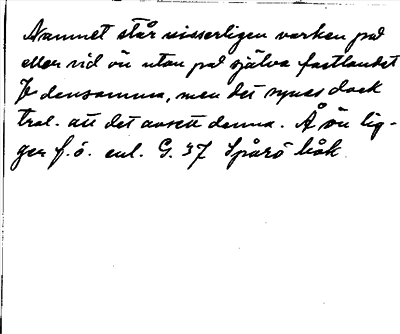 Namnet står visserligen varken på
eller vid ön utan på själva fastlandet
densamma, men det synes dock
trol. att det avsett denna. Å ön lig-
ger f.ö. enl. G. 37 Spårö båk